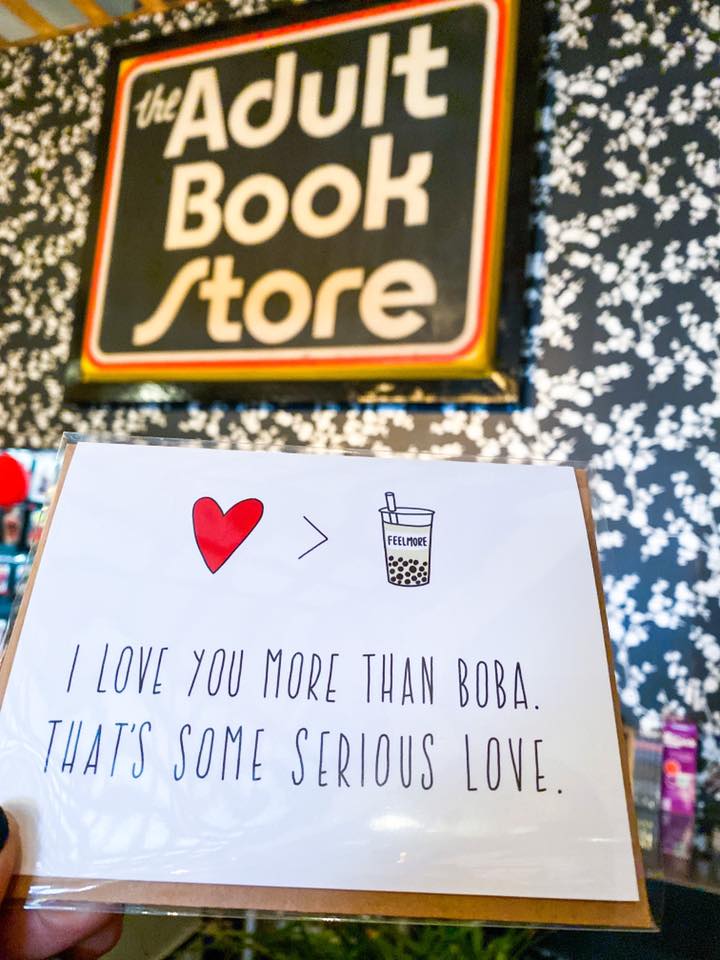 the Adult
Book
Store
>
FEELMORE
I LOVE YOU MORE THAN BOBA.
THAT'S SOME SERIOUS LOVE.